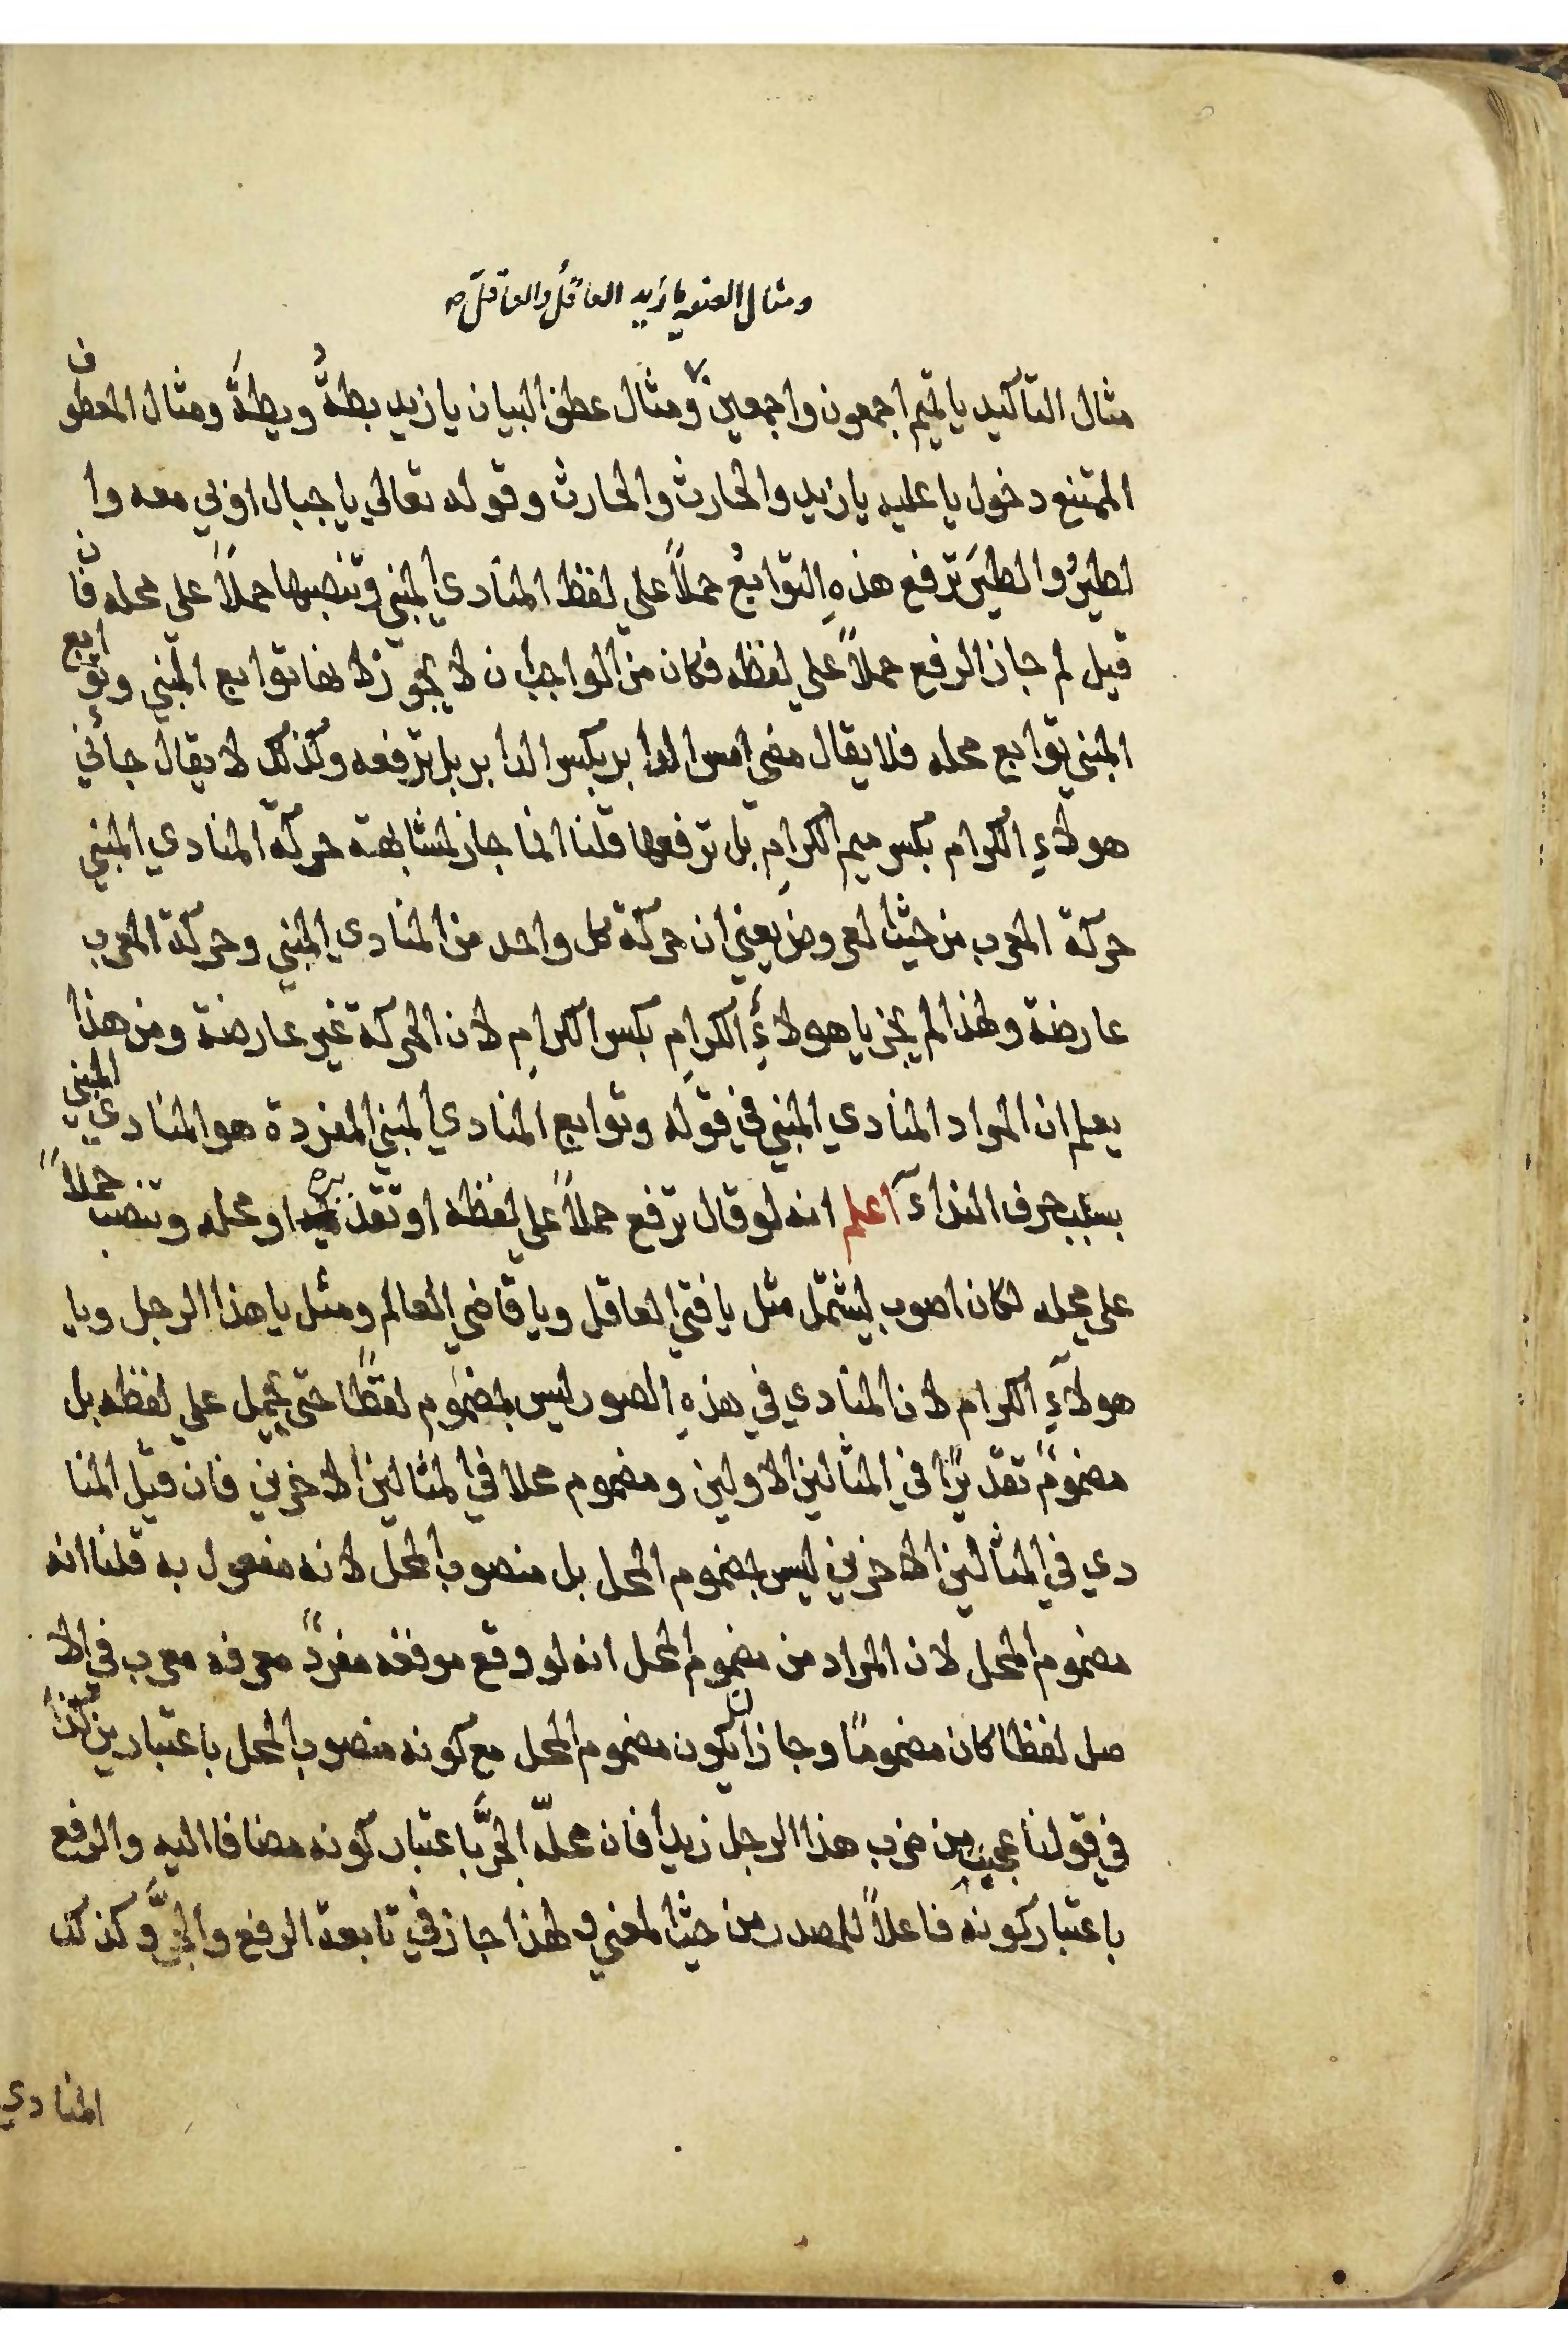 ومثال الصفة يا زيد العاقلُ والعاقلَ صح
مثال التأكيد يا تميم اجمعون واجمعين ومثال عطف البيان يا زيد بطةُ وبطةَ ومثال المعطوف
الممتنع دخول يا عليه يا زيد والحارث والحارث وقوله تعالي يا جبال اوبي معه وا
لطيرُ والطيرَ ترفع هذهِ التوابعُ حملاً علي لفظ المنادي المبني وتنصبها حملاً علي محله فان
قيل لم جاز الرفع حملاً علي لفظه فكان من الواجب ان لا يجوز لانها توابع المبني وتوابع
المبني توابع محله فلا يقال مضي امس الدابر بكسر الدابر بل ترفعه وكذلك لا يقال جأني
هولاءِ الكرام بكسر ميم الكرامِ بل ترفعها قلنا انما جاز لمشابهة حركة المنادي المبني
حركة المعرب من حيث العروض يعني ان حركة كل واحد من المنادي المبني وحركة المعرب
عارضة ولهذا لم يجز يا هولاءِ الكرامِ بكسر الكرامِ لان الحركة غير عارضة ومن هذا
يعلم ان المراد المنادي المبني في قوله وتوابع المنادي المبني المفردة هو المنادي المبني
بسبب حرف النداء اعلم انه لو قال ترفع حملاً علي لفظه او تقديره او محله وتنصب حملاً
علي محله لكان اصوب ليشتمل مثل يا فتي العاقل ويا قاضي العالم ومثل يا هذا الرجل ويا
هولآءِ الكرام لان المنادي في هذهِ الصور ليس بمضموم لفظًا حتي يحمل علي لفظه بل
مضمومً تقديرًا في المثالين الاولين ومضموم محلا في المثالين الاخرين فان قيل المنا
دي في المثالين الاخرين ليس بمضموم المحل بل منصوب المحل لانه مفعول به قلنا انه
مضموم المحل لان المراد من مضموم المحل انه لو وقع موقعه مفردً معرفه معرب في الا
صل لفظا كان مضمومًا وجاز ان يكون مضموم المحل مع كونه منصوب المحل باعتبارين كهذا
في قولنا عجبت من ضرب هذا الرجل زيدا فان محلّه الجرَّ باعتبار كونه مضافا اليه والرفع
باعتبار كونه فاعلاً للمصدر من حيث المعني ولهذا جاز في تابعة الرفع والجرَّ وكذلك
المنادي